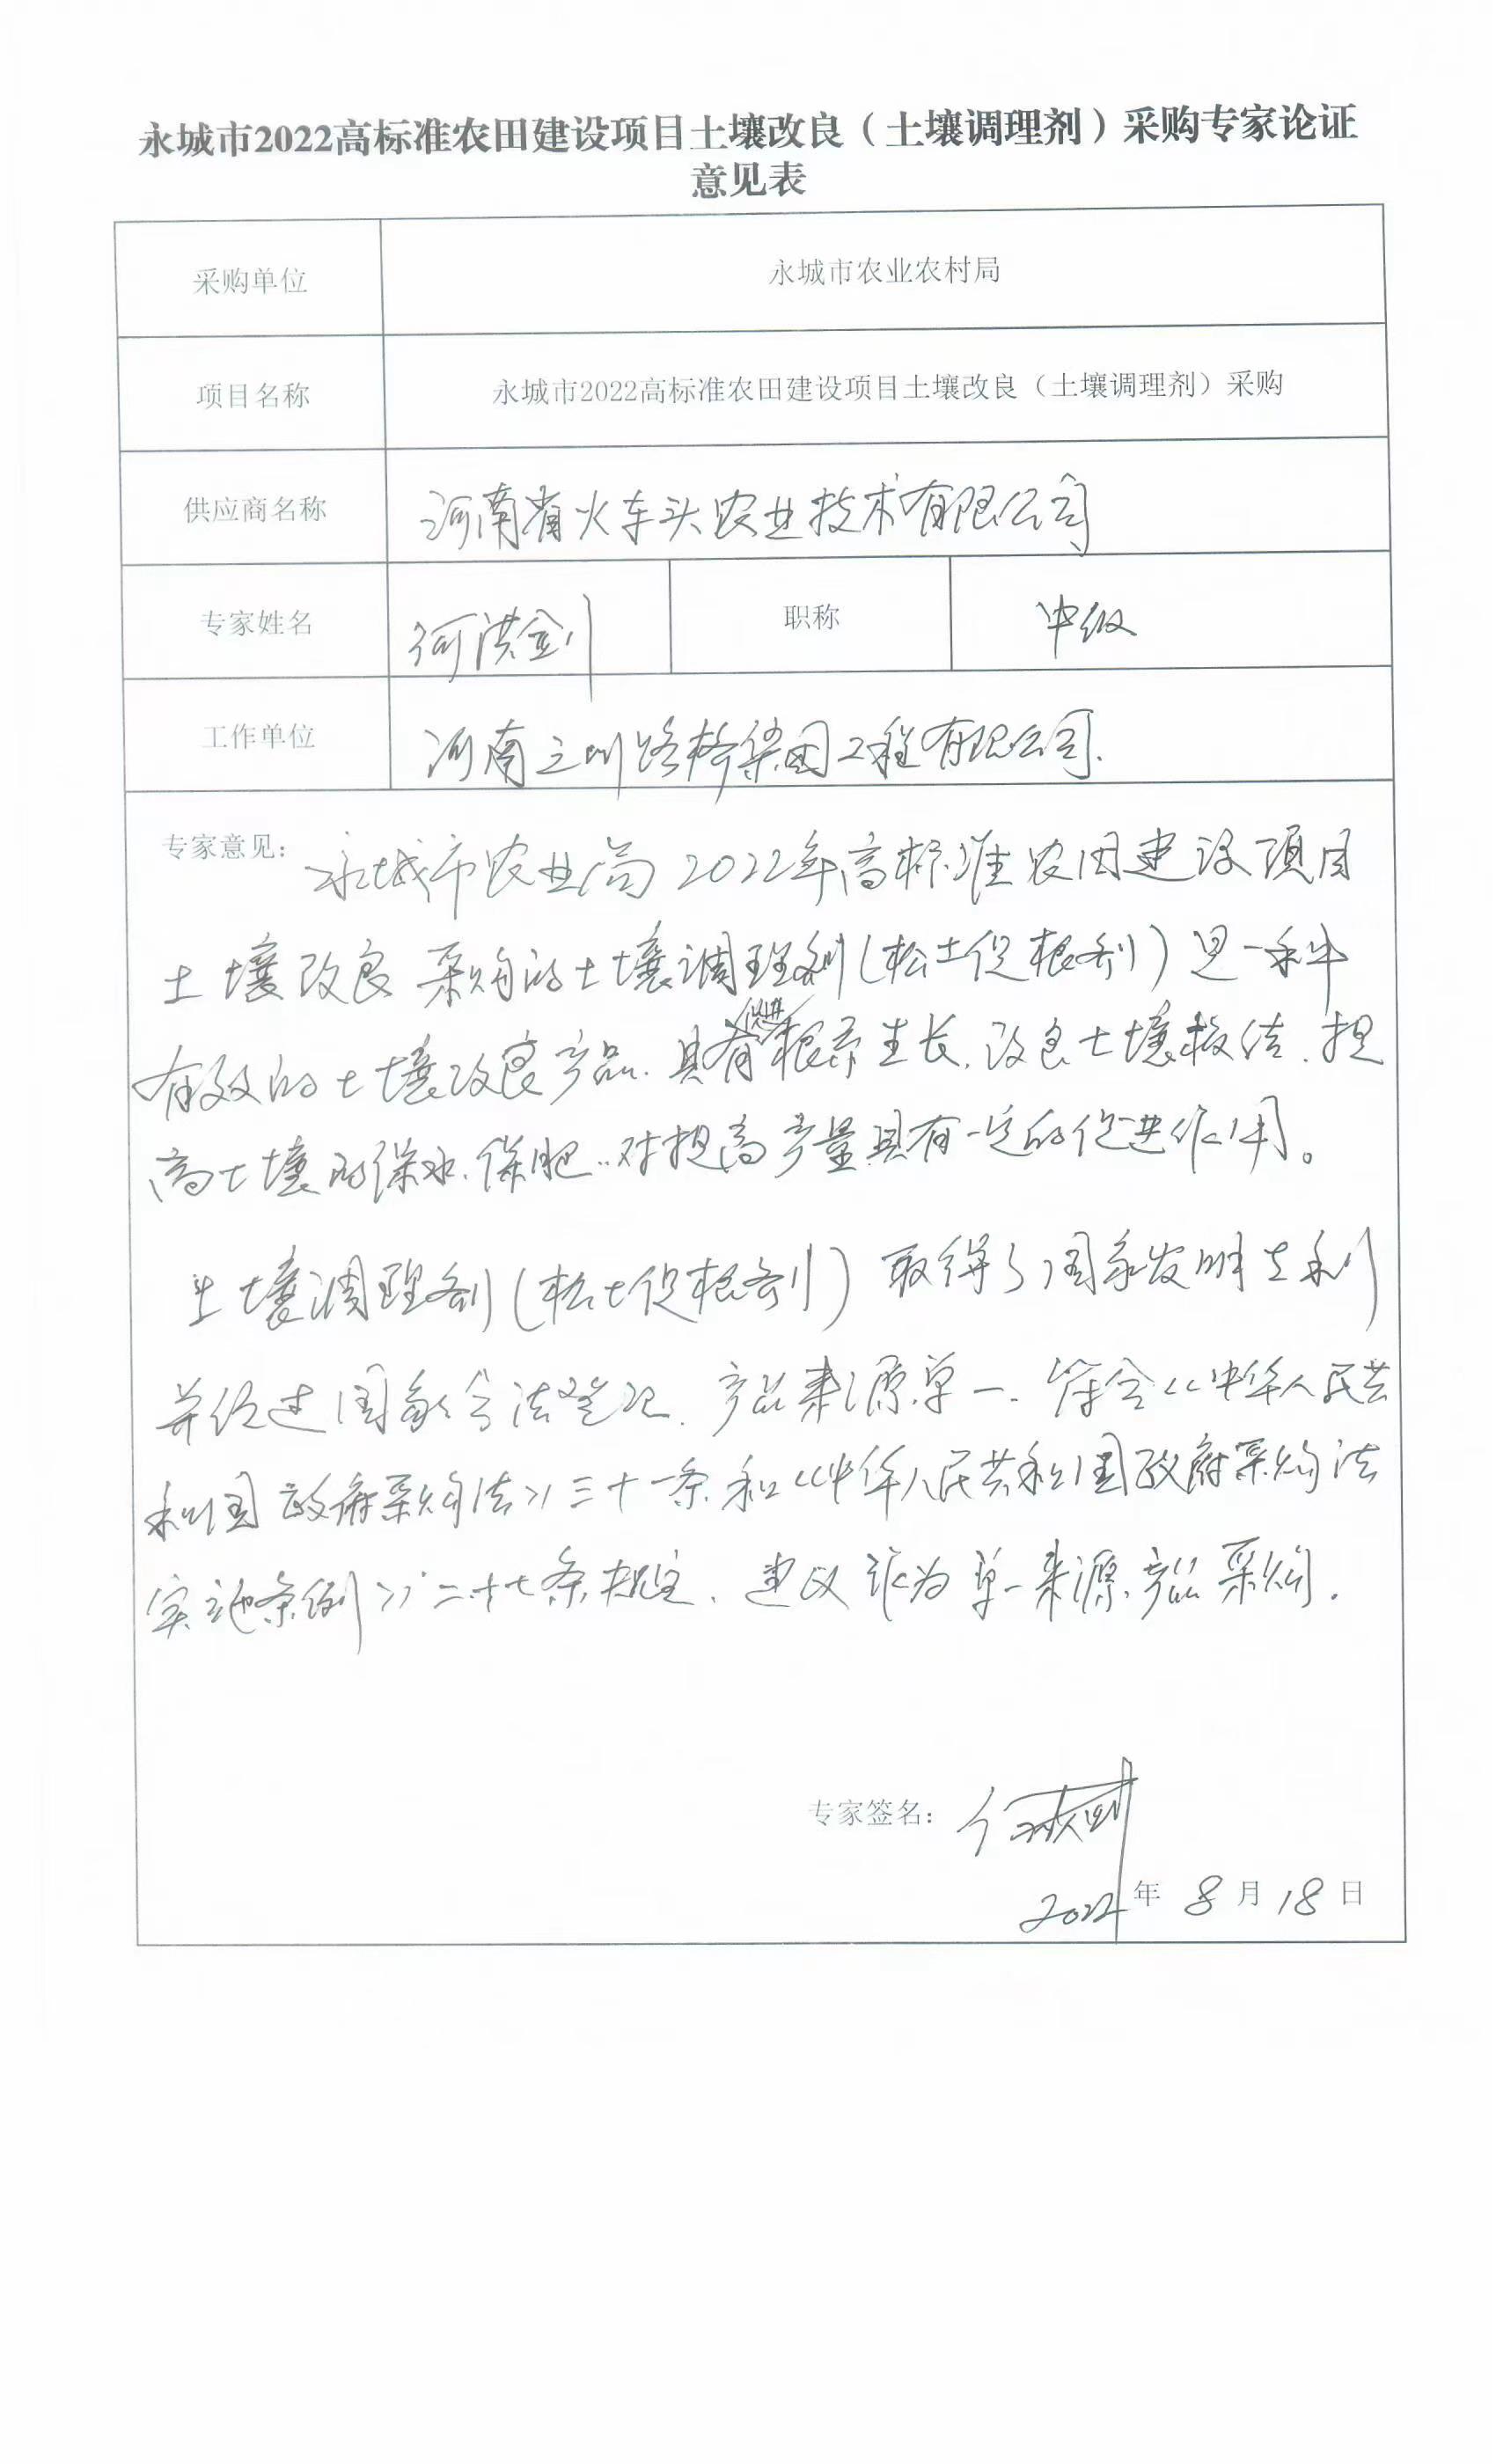 永城市2022高标准农田建设项目土壤改良（土壤调理剂）采购专家论证
意见表
采购单位
永城市农业农村局
项目名称
永城市2022高标准农田建设项目土壤改良（土壤调理剂）采购
供应商名称
河南省火车头农业技术有限公司
专家姓名
何洪剑
职称
中级
工作单位
河南 路桥集团工程有限公司.
专家意见：
永城市农业局2022年高标准农田建设项目
土壤改良采购的土壤调理剂(松土促根剂)是一种
有效的土壤改良产品.具有促进根系生长,改良土壤板结.提
高土壤的保水.保肥..对提高产量具有一定的促进作用。
土壤调理剂(松土促根剂)取得了国家发明专利
并经过国家合法登记.产品来源单一.符合《中华人民共
和国政府采购法》三十一条和《中华人民共和国政府采购法
实施条例》二十七条规定.建议 为单一来源产品采购.
专家签名：
2022年8月18日